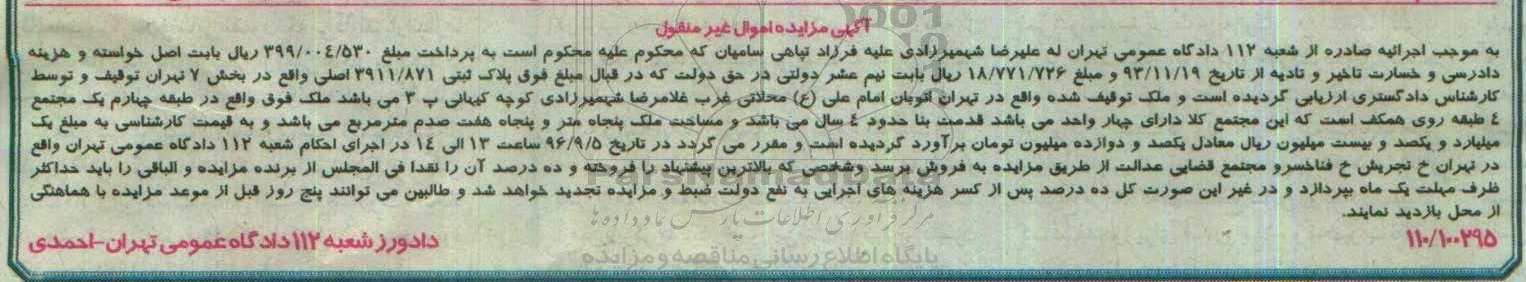 آگهی مزایده اموال غیر منقول
به موجب اجرائیه صادره از شعبه ۱۱۲ دادگاه عمومی تهران له علیرضا شهمیرزادی علیه فرزاد تپاهی سامیان که محکوم علیه محکوم است به پرداخت مبلغ ۳۹۹/۰۰۴/۵۳۰ ریال بابت اصل خواسته و هزینه
دادرسی و خسارت تاخیر و تادیه از تاریخ ۹۳/۱۱/۱۹ و مبلغ ۱۸/۷۷۱/۷۲۶ ریال بابت نیم عشر دولتی در حق دولت که در قبال مبلغ فوق پلاک ثبتی ۳۹۱۱/۸۷۱ اصلی واقع در بخش ۷ تهران توقیف و توسط
کارشناس دادگستری ارزیابی گردیده است و ملک توقیف شده واقع در تهران اتوبان امام علی (ع) محلاتی غرب غلامرضا شهمیرزادی کوچه کیهانی پ ۳ می باشد ملک فوق واقع در طبقه چهارم یک مجتمع
٤ طبقه روی همکف است که این مجتمع کلا دارای چهار واحد می باشد قدمت بنا حدود ٤ سال می باشد و مساحت ملک پنجاه متر و پنجاه هفت صدم مترمربع می باشد و به قیمت کارشناسی به مبلغ یک
میلیارد و یکصد و بیست میلیون ریال معادل یکصد و دوازده میلیون تومان برآورد گردیده است و مقرر می گردد در تاریخ ۹۶/۹/۵ ساعت ۱۳ الی ۱٤ در اجرای احکام شعبه ۱۱۲ دادگاه عمومی تهران واقع
در تهران خ تجریش خ فناخسرو مجتمع قضایی عدالت از طریق مزایده به فروش برسد وشخصی که بالاترین پیشنهاد را فروخته و ده درصد آن را نقدا فی المجلس از برنده مزایده و الباقی را باید حداکثر
ظرف مهلت یک ماه بپردازد و در غیر این صورت کل ده درصد پس از کسر هزینه های اجرایی به نفع دولت ضبط و مزایده تجدید خواهد شد و طالبین می توانند پنج روز قبل از موعد مزایده با هماهنگی
از محل بازدید نمایند.
۱۱۰/۱۰۰۲۹۵
دادورز شعبه ۱۱۲ دادگاه عمومی تهران-احمدی
مرکز فرآوری اطلاعات پارس نماد داده ها
پایگاه اطلاع رسانی مناقصه و مزایده